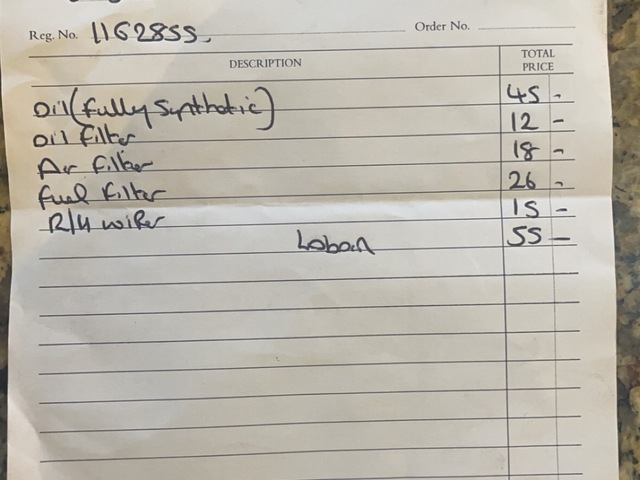 Reg. No. 11G2855. Order No.
DESCRIPTION TOTAL PRICE
Oil (fully Synthetic) 45 -
Oil filter 12 -
Air filter 18 -
fuel filter 26 -
R/H wiper 15 -
Labour 55 -